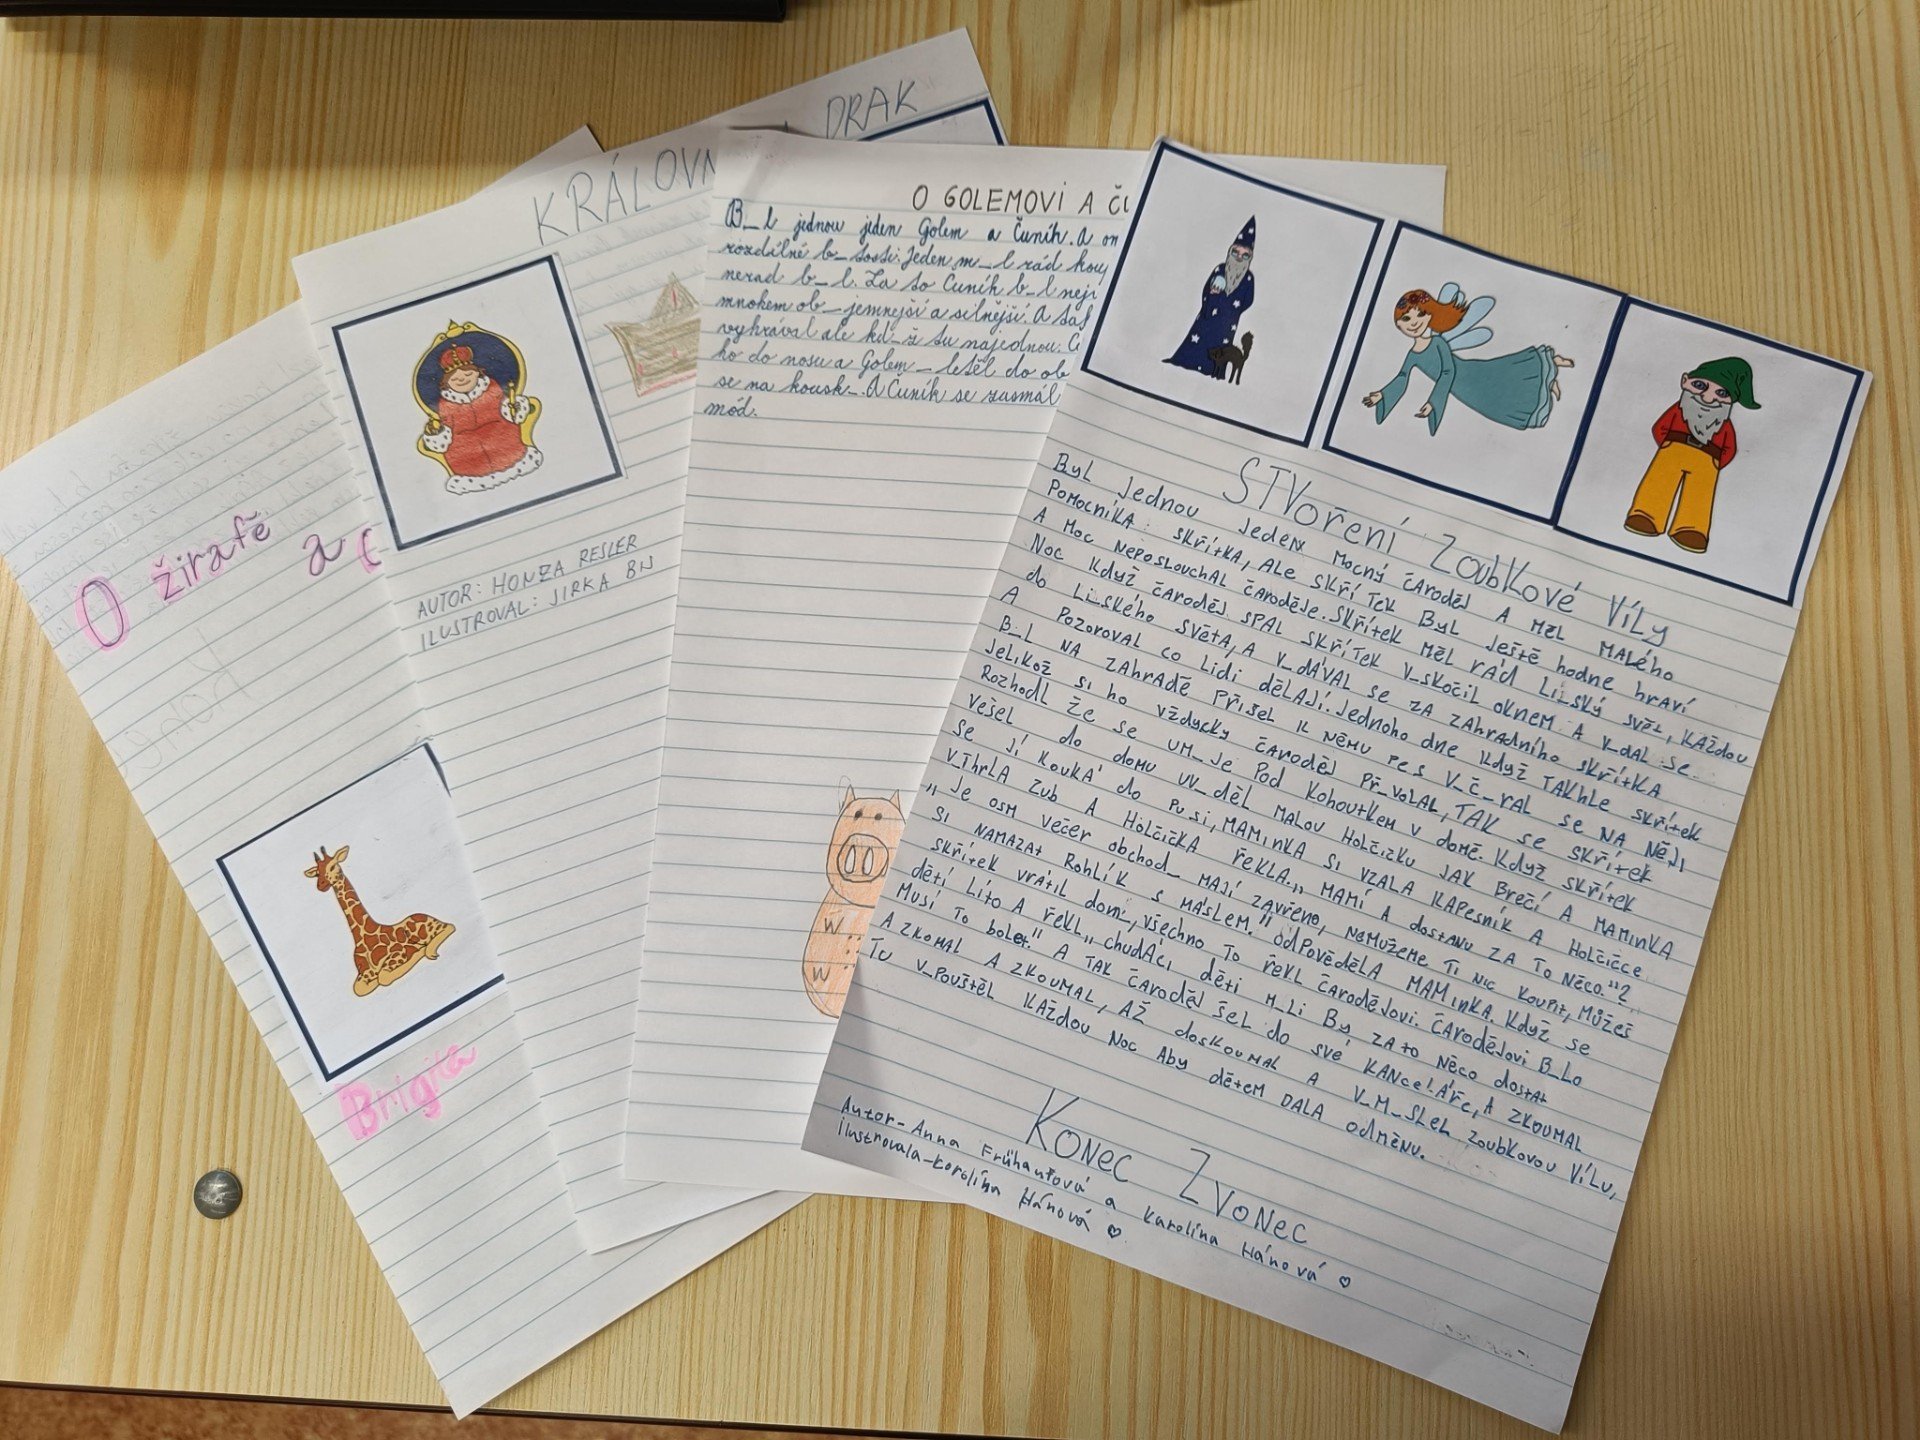 O žirafě
a
Brigita
KRÁLOVN
DRAK
AUTOR: HONZA RESLER
ILUSTROVAL: JIRKA BN
O GOLEMOVI A ČU
B_l jednou jeden Golem a Čuník. A on
rozdílné b_tosti. Jeden m_l rád koup
nerad b_l. Za to Čuník b_l nejr
mnohem ob_jemnejší a silnější. A tak
vyhrával ale kd_ž tu najednou. Č
ho do nosu a Golem _letěl do ob
se na kousk_. A Čuník se zasmál
mód.
W
W
STVoření Zoubkové Víly
Byl jednou jeden mocný čaroděj A měl malého
Pomocníka skřítka, ale skřítek Byl ještě hodne hraví
A moc neposlouchal čaroděje. Skřítek měl rád li_ský svět, každou
Noc když čaroděj spal skřítek v_skočil oknem A v_dal se
do li_ského světa, a v_dával se za zahradního skřítka
A pozoroval co lidi dělají. Jednoho dne když takhle skřítek
B_l na zahradě přišel k němu pes v_č_ral se na něj
Jelikož si ho vždycky čaroděj př_volal, tak se skřítek
Rozhodl že se um_je pod kohoutkem v domě. Když skřítek
vešel do domu uv_děl malou holčičku jak brečí A maminka
se jí kouká do pusi, maminka si vzala kapesník A holčičce
v_trhla zub A holčička řekla „ mamí A dostanu za to něco."?
„ Je osm večer obchod_ mají zavřeno, nemůžeme ti nic koupit, můžeš
si namazat rohlík s máslem." odpověděla maminka. Když se
skřítek vrátil dom_, všechno to řekl čarodějovi. Čarodějovi b_lo
dětí líto A řekl „ chudáci děti m_li by za to něco dostat
Musí to bolet." A tak čaroděj šel do své kanceláře, A zkoumal
A zkomal A zkoumal, až doskoumal A v_m_slel zoubkovou vílu,
Tu v_pouštěl každou noc aby dětem dala odměnu.
Konec Zvonec
Autor - Anna Frühaufová a Karolína Hánová ♡
ilustrovala - Karolína Hánová ♡